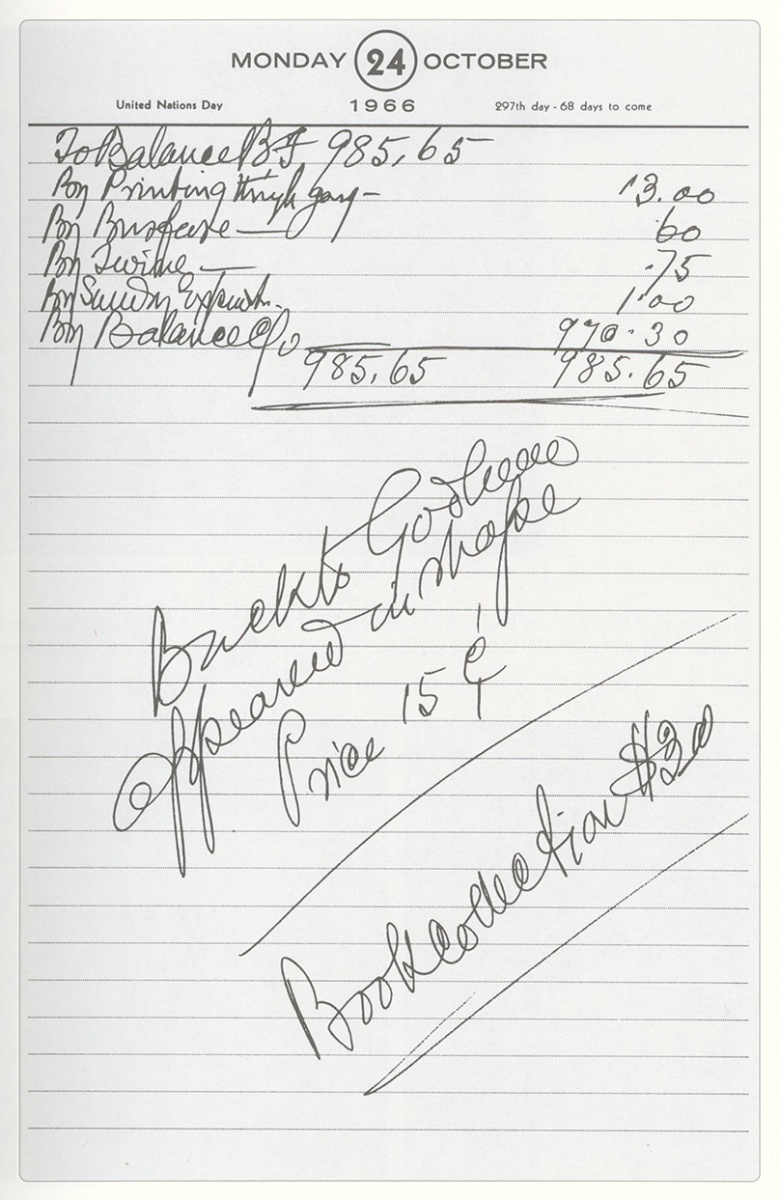 MONDAY 24 OCTOBER
United Nations Day 1966 297th day - 68 days to come
To Balance B/F 985.65
By Printing through gary - 13.00
By Busfare — 60
By Twine — .75
By Sundry Expenses. 1.00
By Balance C/o 970.30
985.65 985.65
Back to Godhead
appeared in shape
Price 15 ¢
Book collection $30